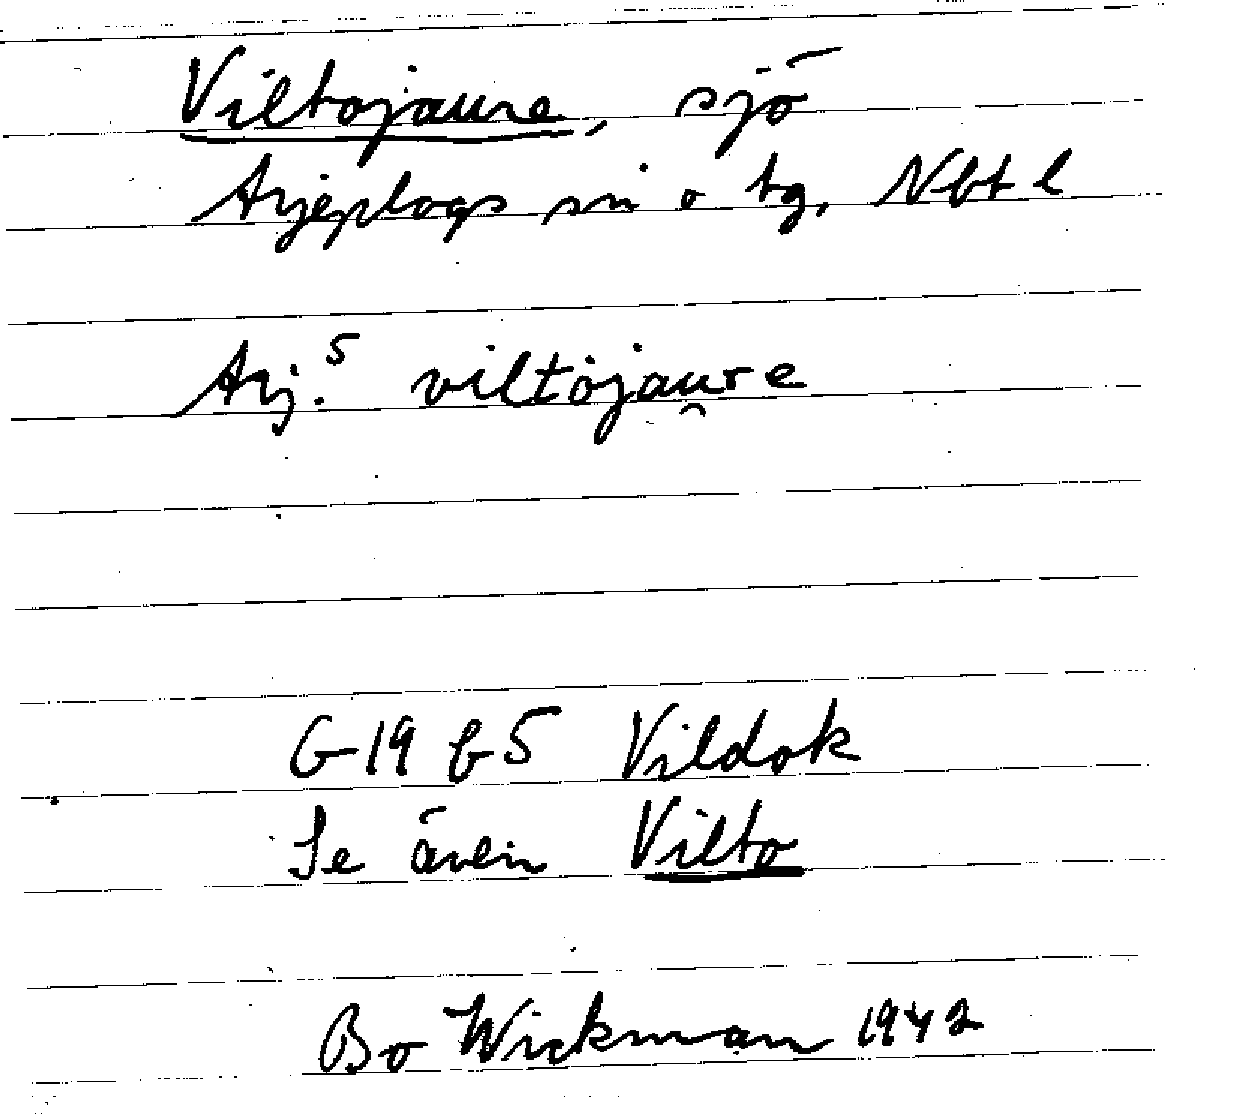 Viltojaure, sjö
Arjeplogs sn o tg, Nbt l
Arj.⁵ viltȯjau̯re
G 19 b 5 Vildok
Se även Vilto
Bo Wickman 1942